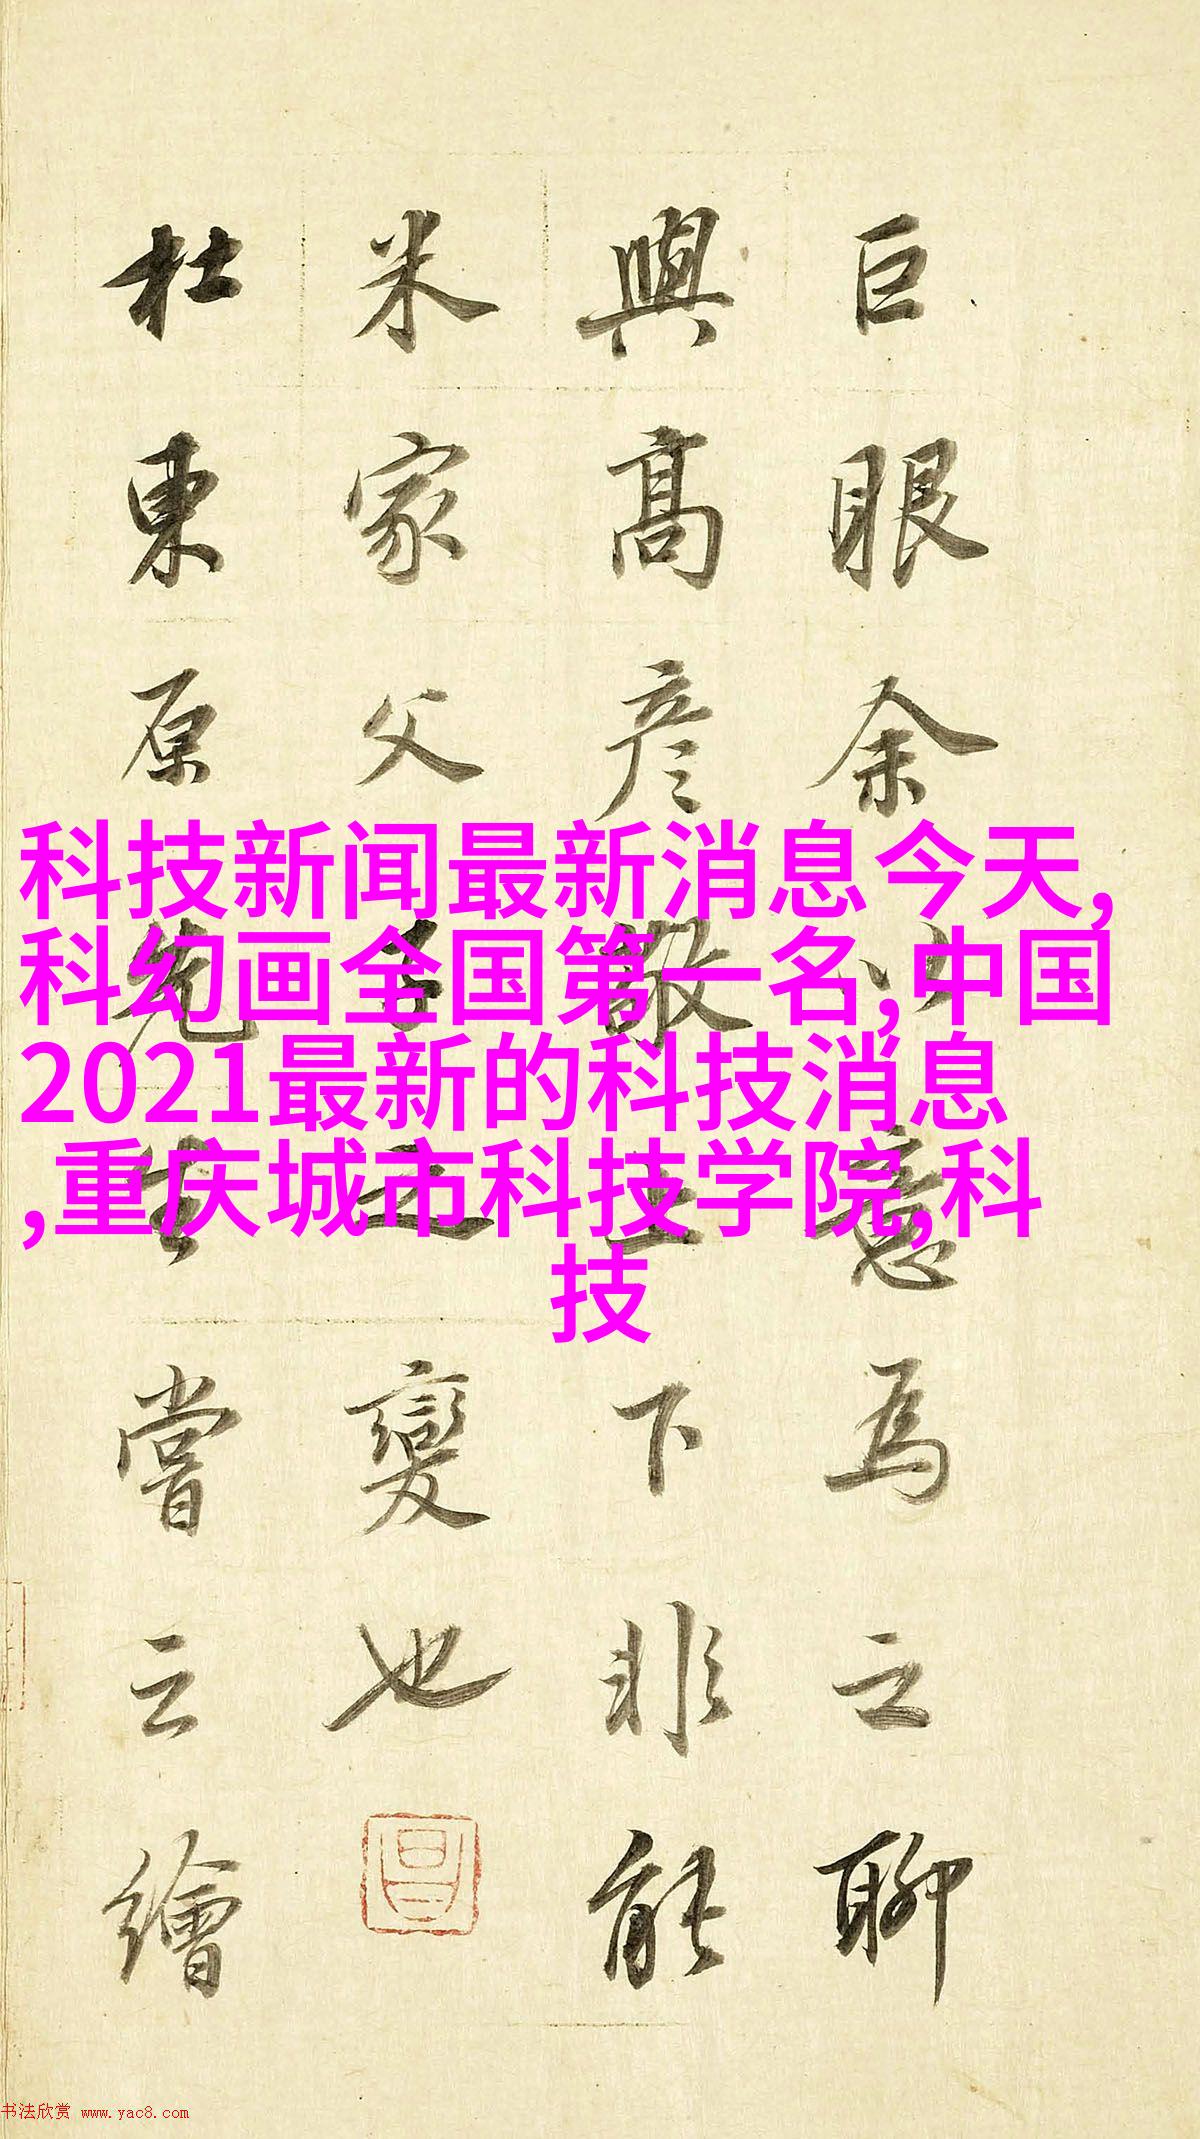 巨眼余以意為之聊
與高彥敬上下非能
米家父子之變也
杜東原先生嘗云繪
科技新闻最新消息今天,
科幻画全国第一名,中国
2021最新的科技消息
,重庆城市科技学院,科
技
书法欣赏 www.yac8.com